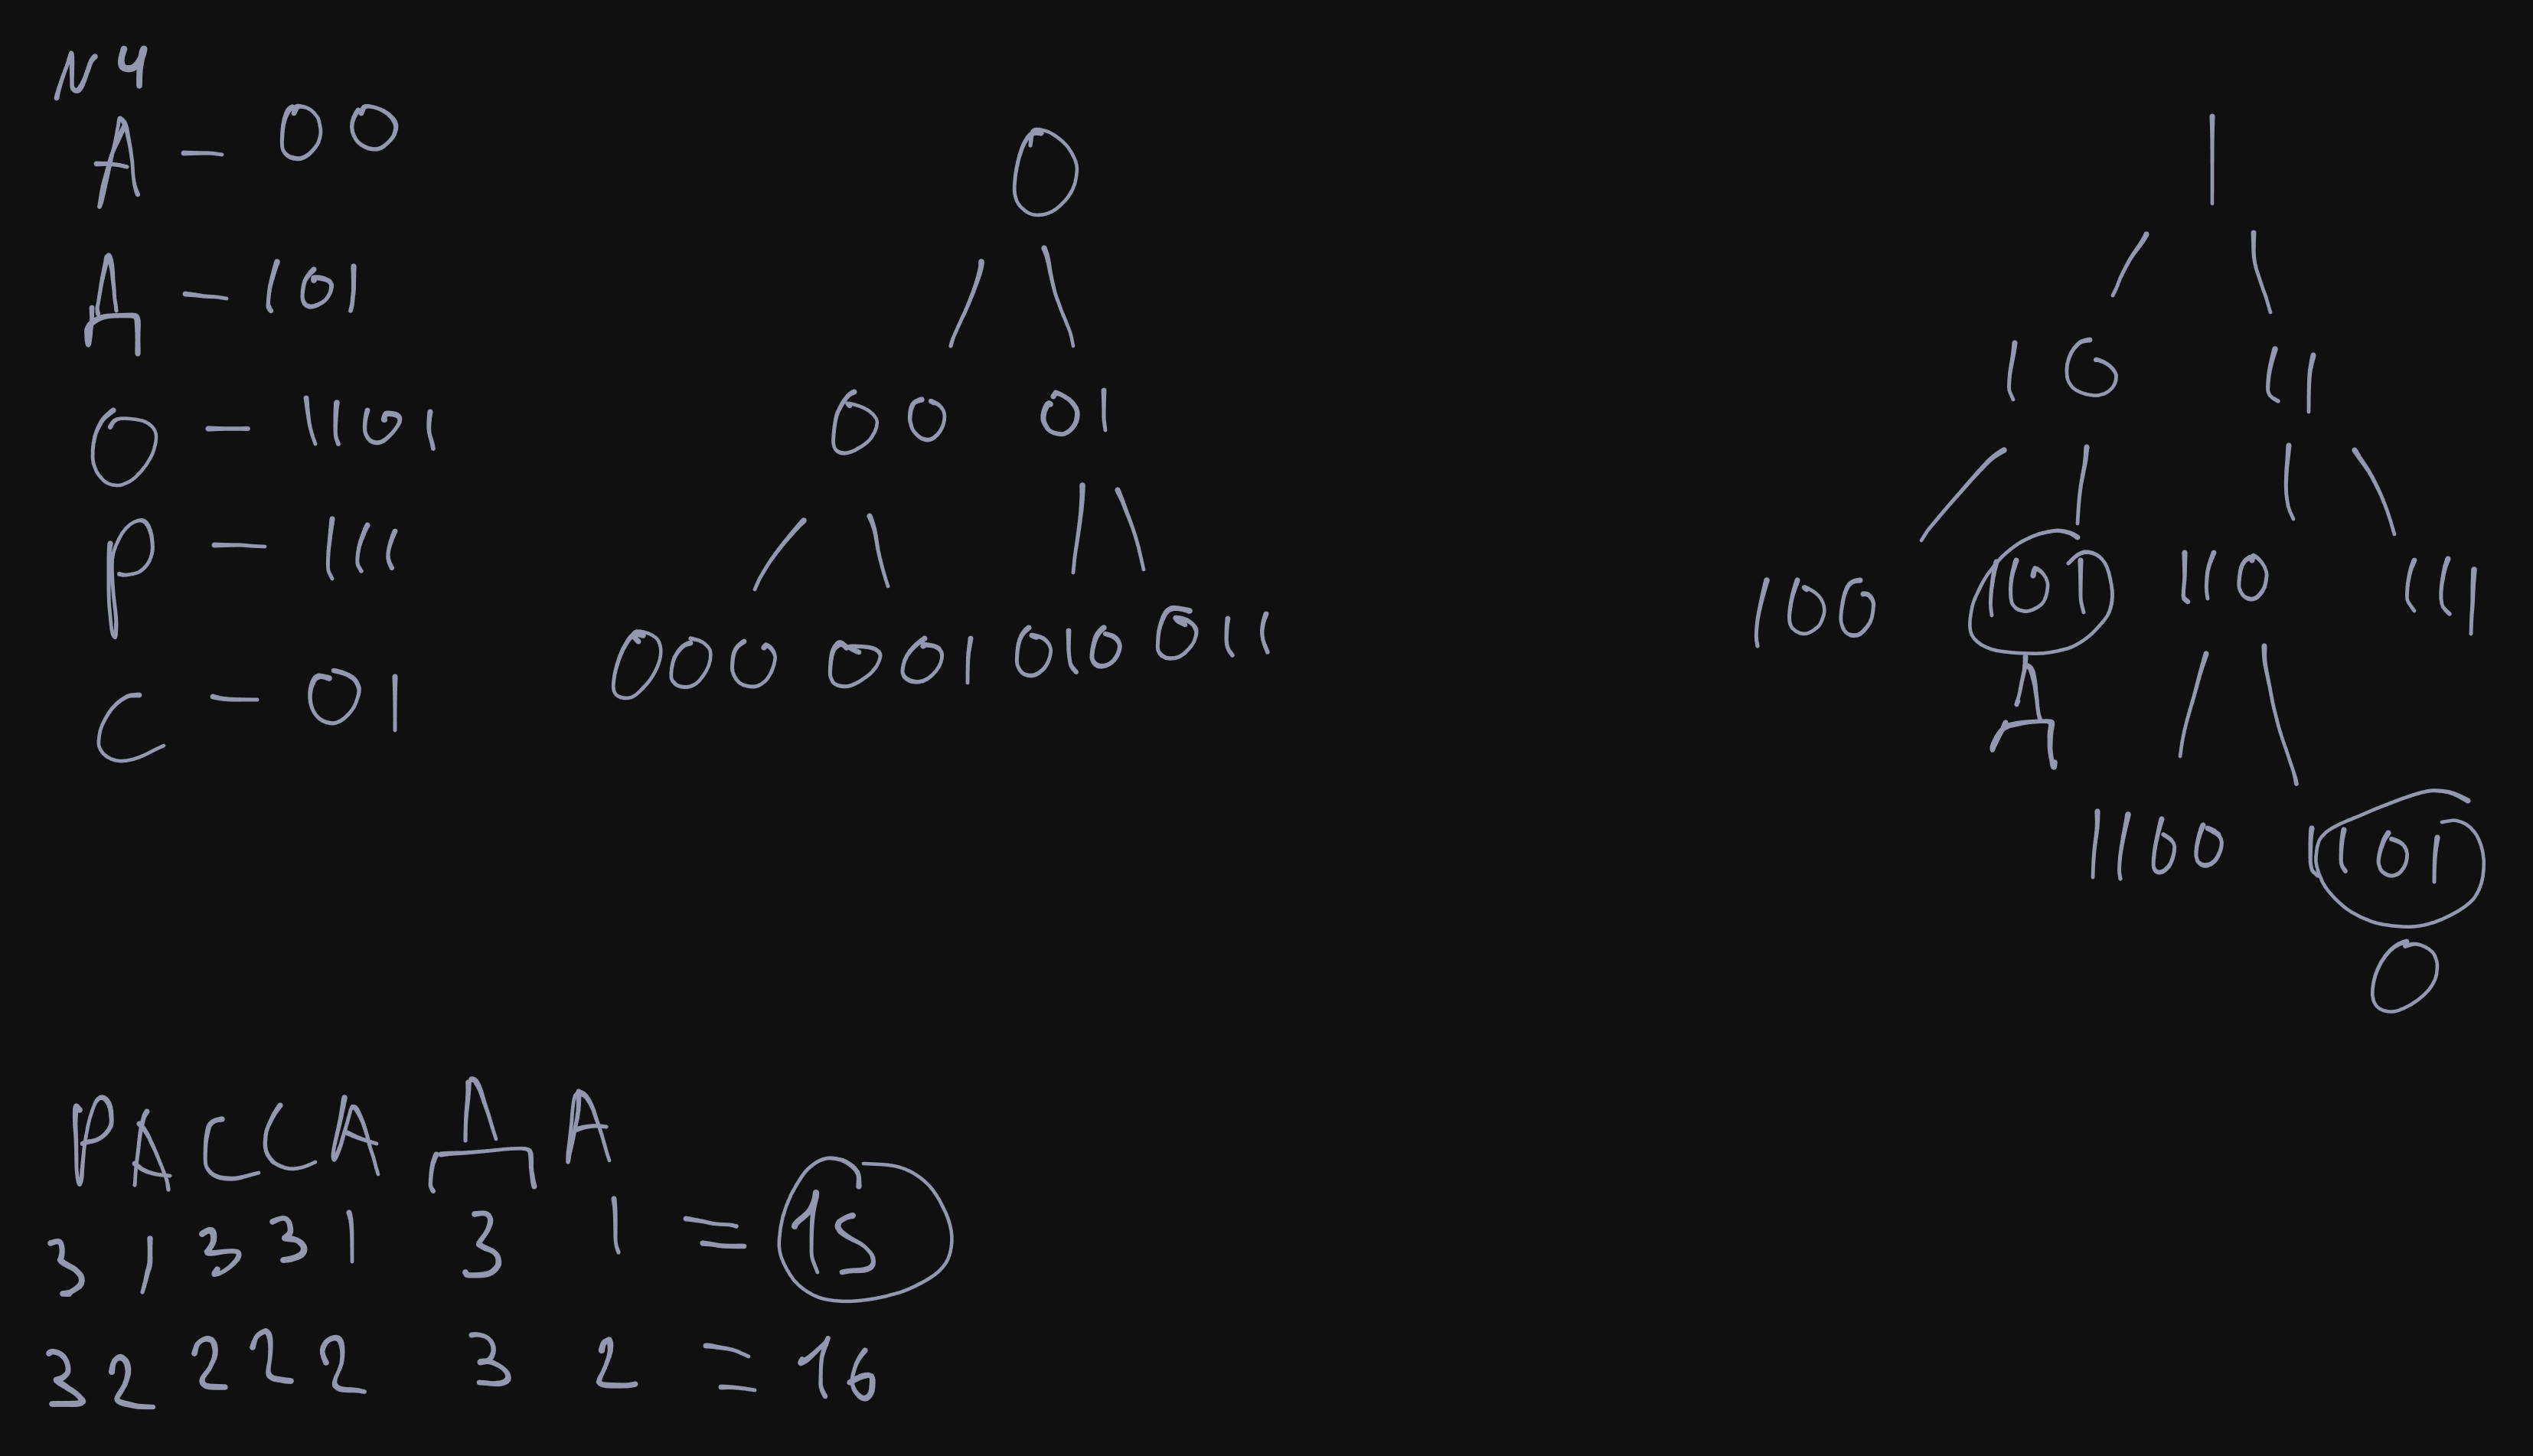 N4
А - 00
Д - 101
О - 1101
Р - 111
С - 01
0
00 01
000 001 010 011
1
10 11
100 101 110 111
Д
1100 1101
О
РАССАДА
3 1 3 3 1 3 1 = 15
3 2 2 2 2 3 2 = 16